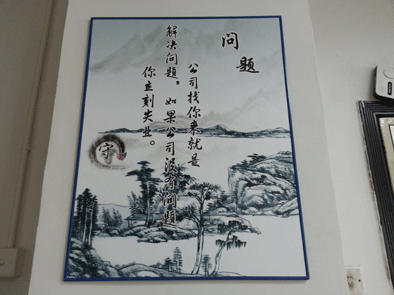 问题
公司找你来就是
解决问题。如果公司没有问题
你立刻失业。
守